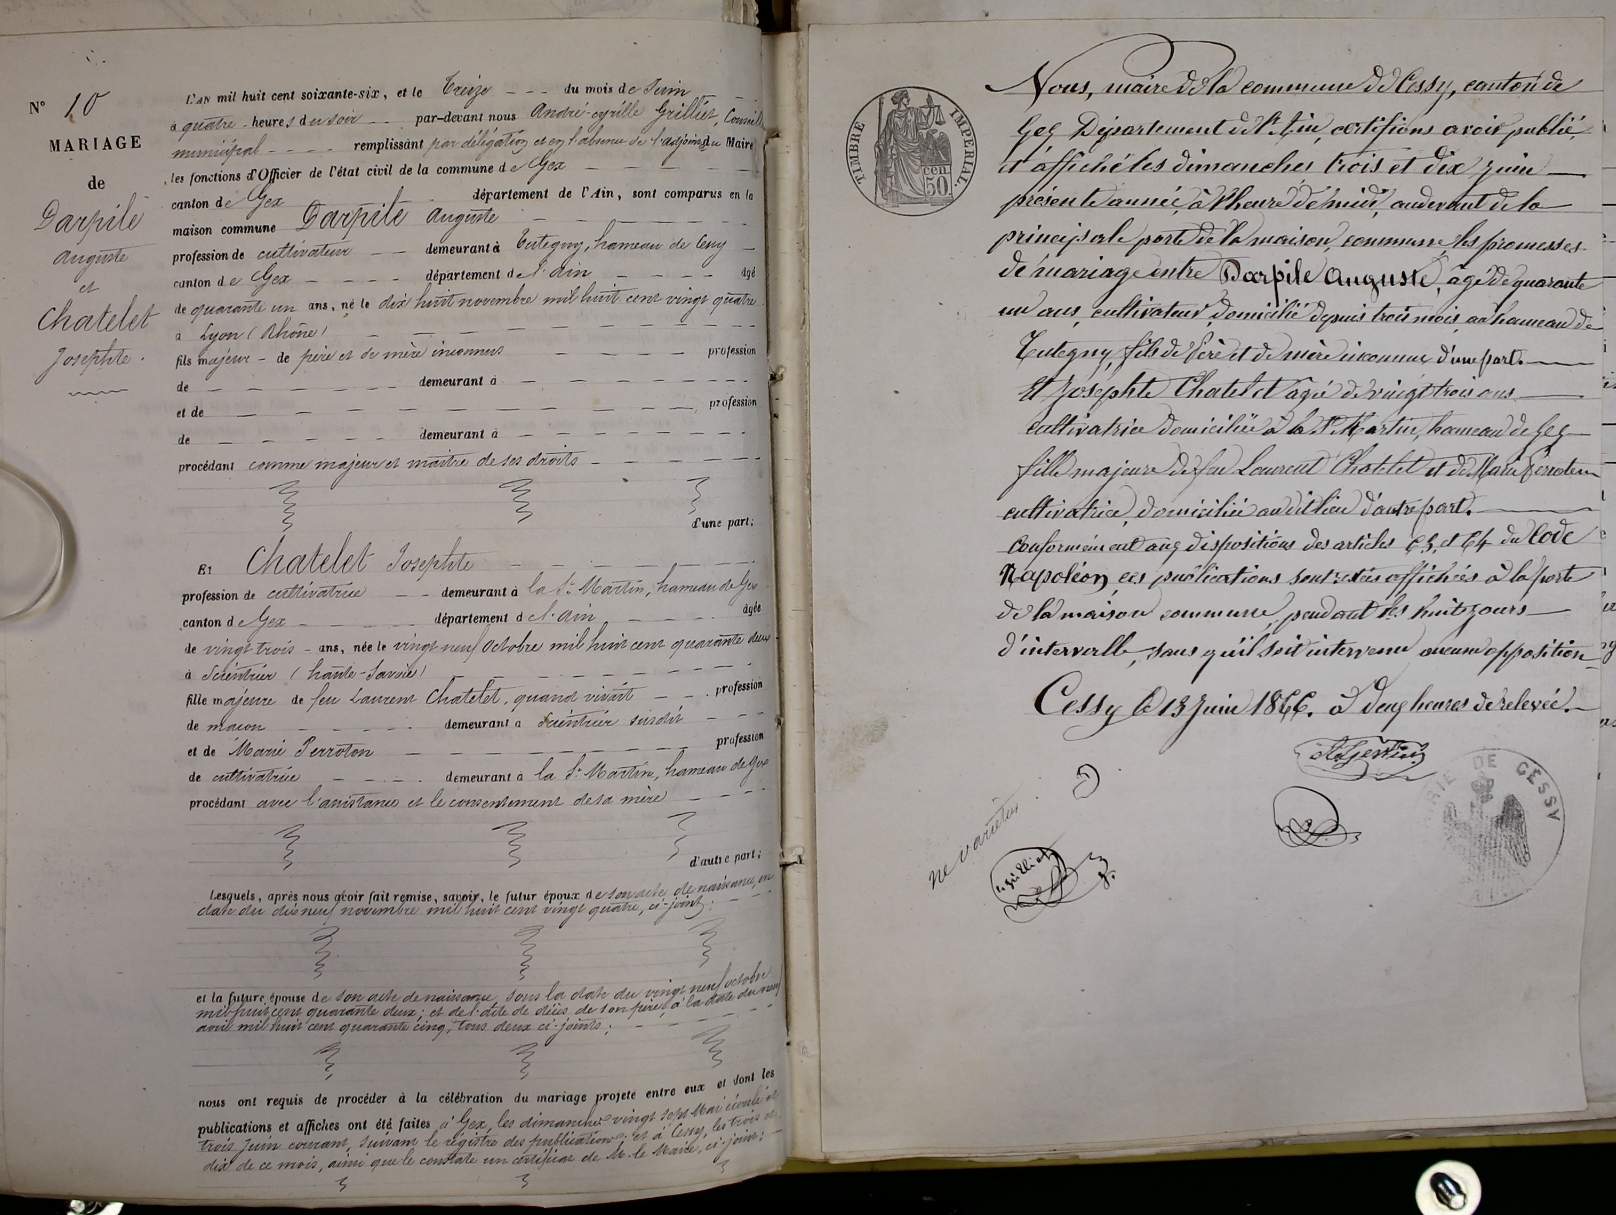 N° 10
MARIAGE
de
Darpile
Auguste
et
Chatelet
Josephte.
L'AN mil huit cent soixante-six, et le treize du mois de Juin
à quatre heures du soir par-devant nous André-cyrille Grilliet, Conseill
municipal remplissant par délégation et en l'absence de l'adjoint du Maire
les fonctions d'Officier de l'état civil de la commune de Gex
canton de Gex département de l'Ain, sont comparus en la
maison commune Darpile Auguste
profession de cultivateur demeurant à Tutegny, hameau de Cessy
canton de Gex département de l'Ain âgé
de quarante un ans, né le dix huit novembre mil huit cent vingt quatre
à Lyon (Rhône)
fils majeur de père et de mère inconnus profession
de demeurant à
et de profession
de demeurant à
procédant comme majeur et maître de ses droits
d'une part;
Et Chatelet Josephte
profession de cultivatrice demeurant à la St Martin, hameau de Gex
canton de Gex département de l'Ain âgée
de vingt trois ans, née le vingt neuf Octobre mil huit cent quarante deux
à Scientrier (haute-Savoie)
fille majeure de feu Laurent Chatelet, quand vivait profession
de maçon demeurant à Scientrier susdit
et de Marie Perroton profession
de cultivatrice demeurant à la St Martin, hameau de Gex
procédant avec l'assistance et le consentement de sa mère
d'autre part;
Lesquels, après nous avoir fait remise, savoir, le futur époux de son acte de naissance, en
date du dix neuf novembre mil huit cent vingt quatre, ci-joint;
et la future épouse de son acte de naissance, sous la date du vingt neuf octobre
mil huit cent quarante deux; et de l'acte de décès de son père, à la date du neuf
avril mil huit cent quarante cinq, tous deux ci-joints;
nous ont requis de procéder à la célébration du mariage projeté entre eux et dont les
publications et affiches ont été faites à Gex, les dimanches vingt sept Mai écoulé et
trois Juin courant, suivant le registre des publications; et à Cessy, les trois et
dix de ce mois, ainsi que le constate un certificat de M. le Maire, ci-joint;
TIMBRE IMPERIAL
50 cen
Nous, maire de la commune de Cessy, canton de
Gex Département de l'Ain, certifions avoir publié,
et affiché les dimanches trois et dix juin
présente année, à l'heure de midi, audevant de la
principale porte de la maison commune les promesses
de mariage entre Darpile Auguste, âgé de quarante
un ans, cultivateur, domicilié depuis trois mois au hameau de
Tutegny, fils de Père et de mère inconnus d'une part.
Et Josephte Chatelet âgée de vingt trois ans
cultivatrice domiciliée à la St Martin, hameau de Gex
fille majeure de feu Laurent Chatelet et de Marie Perroton
cultivatrice, domiciliée au dit lieu d'autre part.
Conformément aux dispositions des articles 63, et 64 du Code
Napoléon, ces publications sont restées affichées à la porte
de la maison commune, pendant les huit jours
d'intervalle, sans qu'il soit intervenu aucune opposition
Cessy le 13 Juin 1866. à deux heures de relevée.
ne varietur
MAIRIE DE CESSY
AIN